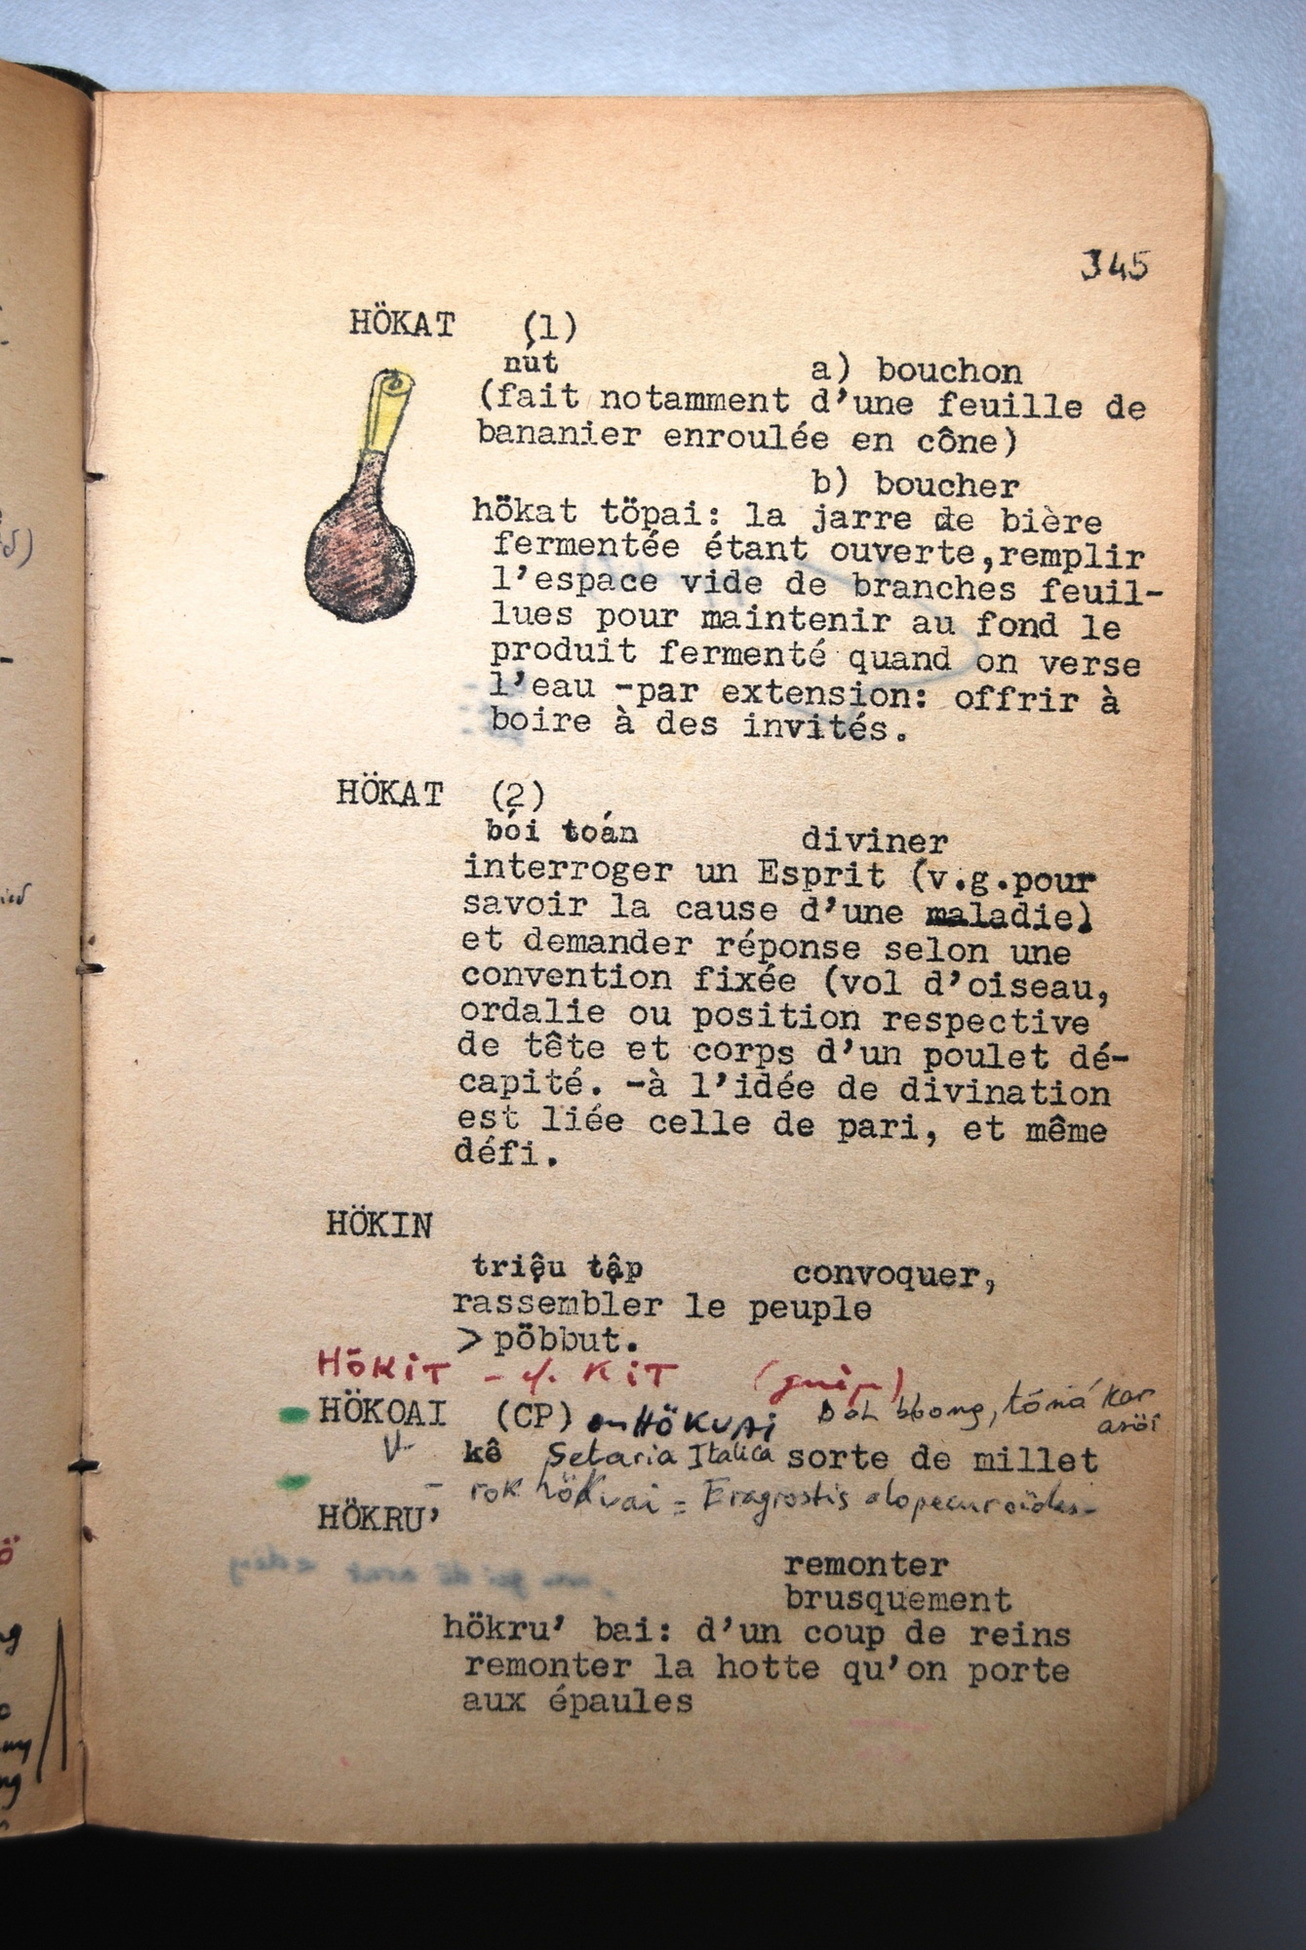 345
HÖKAT (1)
nút a) bouchon
(fait notamment d'une feuille de
bananier enroulée en cône)
b) boucher
hökat töpai: la jarre de bière
fermentée étant ouverte,remplir
l'espace vide de branches feuil-
lues pour maintenir au fond le
produit fermenté quand on verse
l'eau -par extension: offrir à
boire à des invités.
HÖKAT (2)
bói toán diviner
interroger un Esprit (v.g.pour
savoir la cause d'une maladie)
et demander réponse selon une
convention fixée (vol d'oiseau,
ordalie ou position respective
de tête et corps d'un poulet dé-
capité. -à l'idée de divination
est liée celle de pari, et même
défi.
HÖKIN
triệu tập convoquer,
rassembler le peuple
> pöbbut.
HÖKIT - KIT
HÖKOAI (CP) HÖKUAI
kê Setaria Italica sorte de millet
- rok hökuai = Eragrostis alopecuroïdes-
HÖKRU'
remonter
brusquement
hökru' bai: d'un coup de reins
remonter la hotte qu'on porte
aux épaules